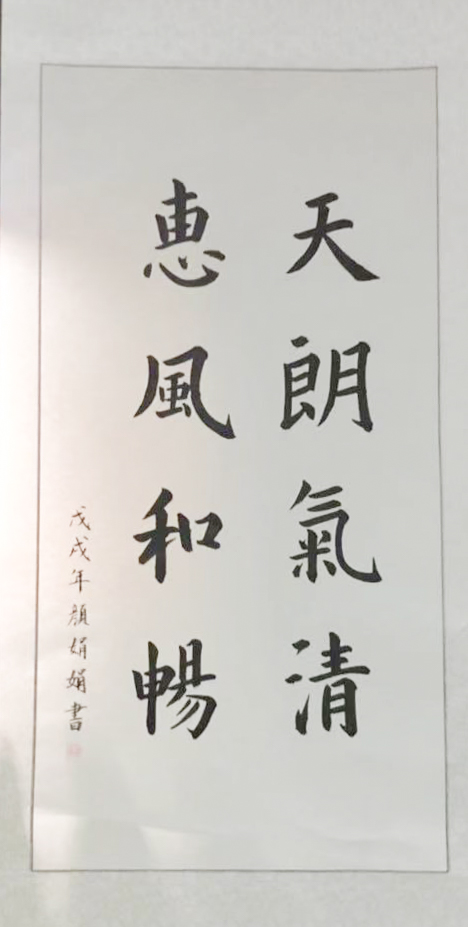 天朗氣清
惠風和暢
戊戌年顏娟娟書